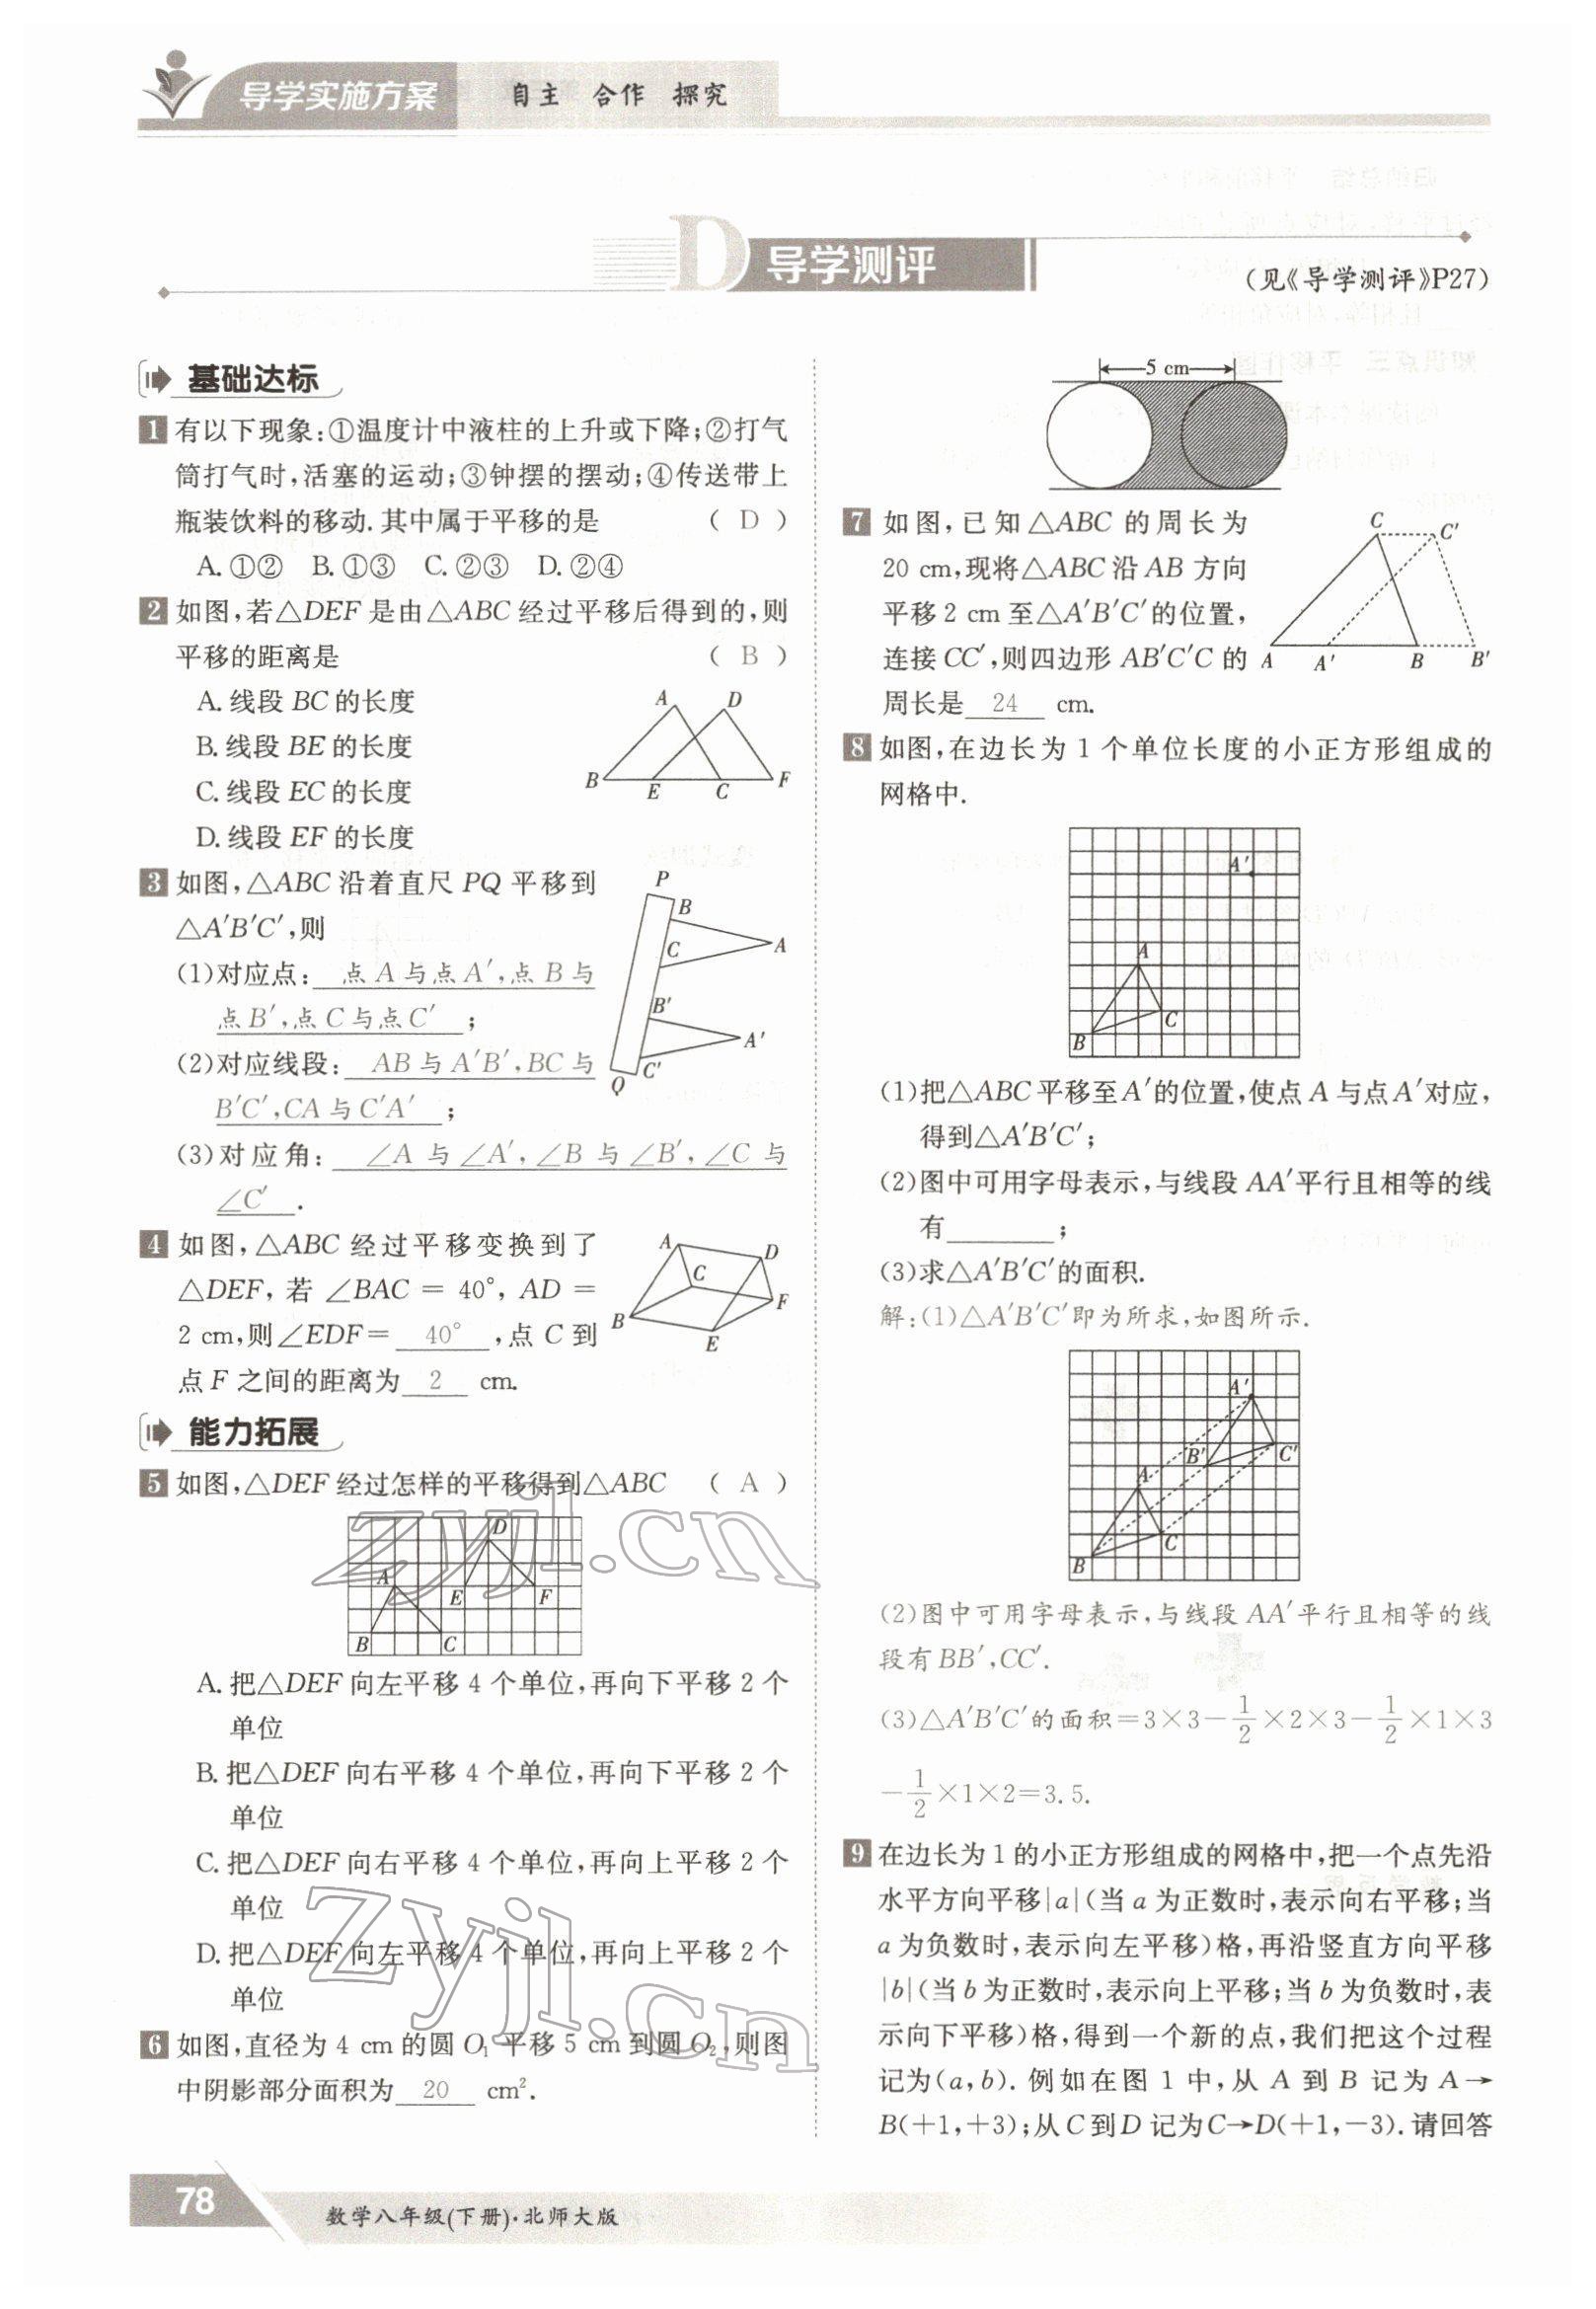 导学实施方案 自主 合作 探究
D 导学测评
(见《导学测评》P27)
基础达标
1 有以下现象:①温度计中液柱的上升或下降;②打气
筒打气时,活塞的运动;③钟摆的摆动;④传送带上
瓶装饮料的移动.其中属于平移的是 ( D )
A. ①② B. ①③ C. ②③ D. ②④
2 如图,若△DEF 是由△ABC 经过平移后得到的,则
平移的距离是 ( B )
A. 线段 BC 的长度
B. 线段 BE 的长度
C. 线段 EC 的长度
D. 线段 EF 的长度
A D
B E C F
3 如图,△ABC 沿着直尺 PQ 平移到
△A′B′C′,则
(1)对应点: 点 A 与点 A′,点 B 与
点 B′,点 C 与点 C′ ;
(2)对应线段: AB 与 A′B′,BC 与
B′C′,CA 与 C′A′ ;
(3)对应角: ∠A 与 ∠A′,∠B 与 ∠B′,∠C 与
∠C′ .
P
B
C A
B′
A′
C′
Q
4 如图,△ABC 经过平移变换到了
△DEF, 若 ∠BAC = 40°, AD =
2 cm,则∠EDF= 40° ,点 C 到
点 F 之间的距离为 2 cm.
A D
C
F
B
E
能力拓展
5 如图,△DEF 经过怎样的平移得到△ABC ( A )
D
A E F
B C
A. 把△DEF 向左平移 4 个单位,再向下平移 2 个
单位
B. 把△DEF 向右平移 4 个单位,再向下平移 2 个
单位
C. 把△DEF 向右平移 4 个单位,再向上平移 2 个
单位
D. 把△DEF 向左平移 4 个单位,再向上平移 2 个
单位
6 如图,直径为 4 cm 的圆 O₁ 平移 5 cm 到圆 O₂,则图
中阴影部分面积为 20 cm².
5 cm
7 如图,已知△ABC 的周长为
20 cm,现将△ABC 沿 AB 方向
平移 2 cm 至△A′B′C′的位置,
连接 CC′,则四边形 AB′C′C 的
周长是 24 cm.
C C′
A A′ B B′
8 如图,在边长为 1 个单位长度的小正方形组成的
网格中.
A′
A
C
B
(1)把△ABC 平移至 A′的位置,使点 A 与点 A′对应,
得到△A′B′C′;
(2)图中可用字母表示,与线段 AA′平行且相等的线
有 ;
(3)求△A′B′C′的面积.
解:(1)△A′B′C′即为所求,如图所示.
A′
B′ C′
A
C
B
(2)图中可用字母表示,与线段 AA′平行且相等的线
段有 BB′,CC′.
(3)△A′B′C′的面积=3×3−1/2×2×3−1/2×1×3
−1/2×1×2=3.5.
9 在边长为 1 的小正方形组成的网格中,把一个点先沿
水平方向平移|a|(当 a 为正数时,表示向右平移;当
a 为负数时,表示向左平移)格,再沿竖直方向平移
|b|(当 b 为正数时,表示向上平移;当 b 为负数时,表
示向下平移)格,得到一个新的点,我们把这个过程
记为(a,b). 例如在图 1 中,从 A 到 B 记为 A→
B(+1,+3);从 C 到 D 记为 C→D(+1,−3). 请回答
zyjl.cn
zyjl.cn
78
数学八年级(下册)·北师大版